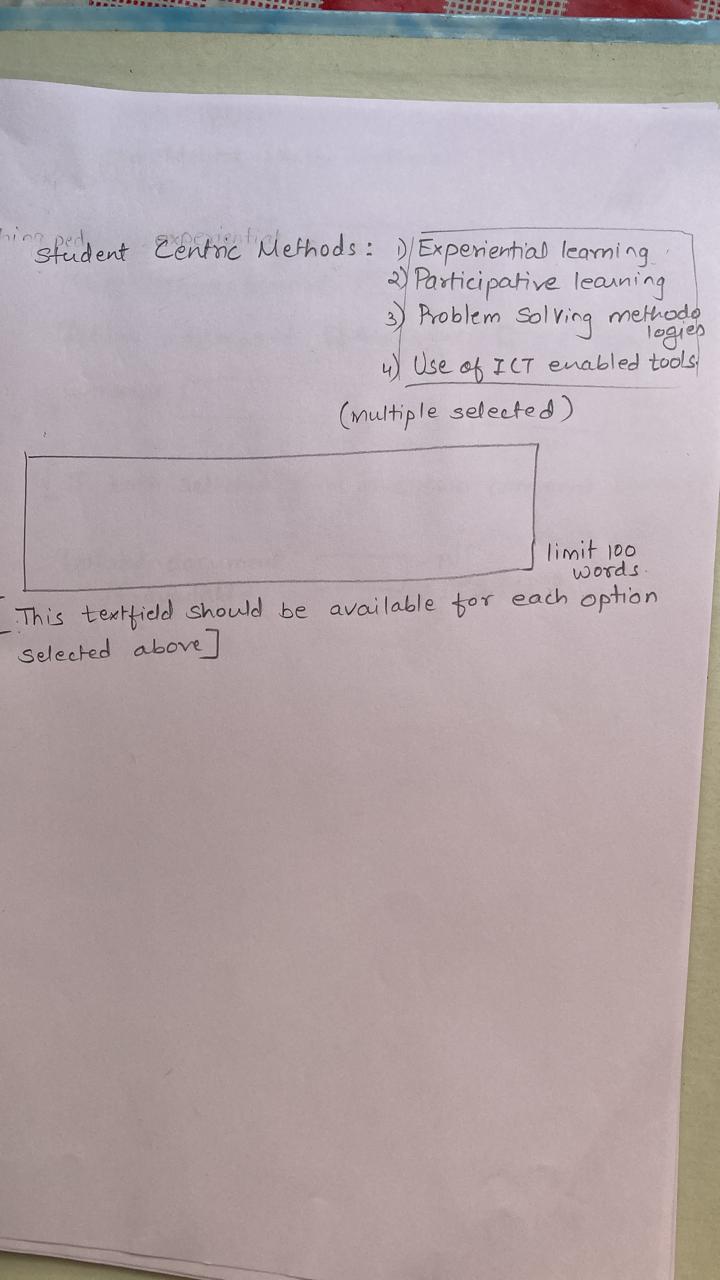 Student Centric Methods : 1) Experiential learning
2) Participative learning
3) Problem Solving methodo
logies
4) Use of ICT enabled tools
(multiple selected)
limit 100
words.
[This textfield should be available for each option
selected above]